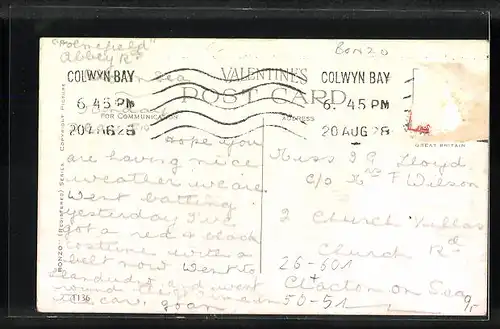 "Homefield"
Abbey Rd
BONZO
COLWYN BAY
6. 45 PM
20 AUG 28
VALENTINE'S
POST CARD
FOR COMMUNICATION
ADDRESS
COLWYN BAY
6. 45 PM
20 AUG 28
GREAT BRITAIN
on Sea
Hope you
are having nice
weather we are.
Went bathing
yesterday I've
got a red & black
costume with a
belt now went to
Llandudno and went
round
car.
"BONZO" (REGISTERED) SERIES. COPYRIGHT PICTURE
1136
Miss Lloyd
C/o Mrs F Wilson
2 Church Villas
Church Rd
Clacton on Sea
26-601
50-51